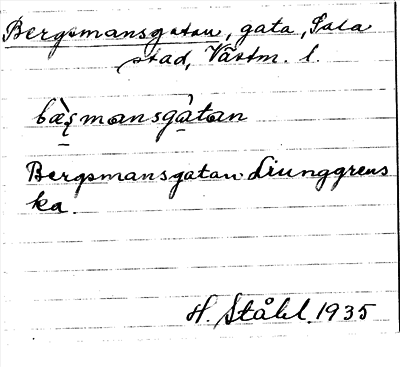 Bergsmansgatan, gata, Sala
stad, Västm. l.
bæ̀ʂmansgàtan
Bergsmansgatan Liunggrens
ka.
H. Ståhl 1935